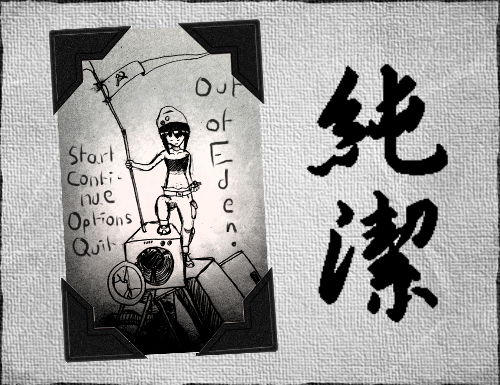 Out
of
Eden.
Start
Conti-
nue
Options
Quit
純潔